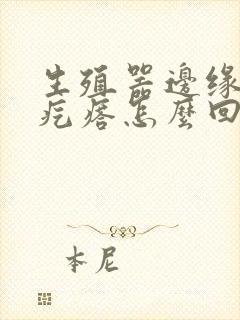 生殖器邊緣
疙瘩怎麼回
本尼